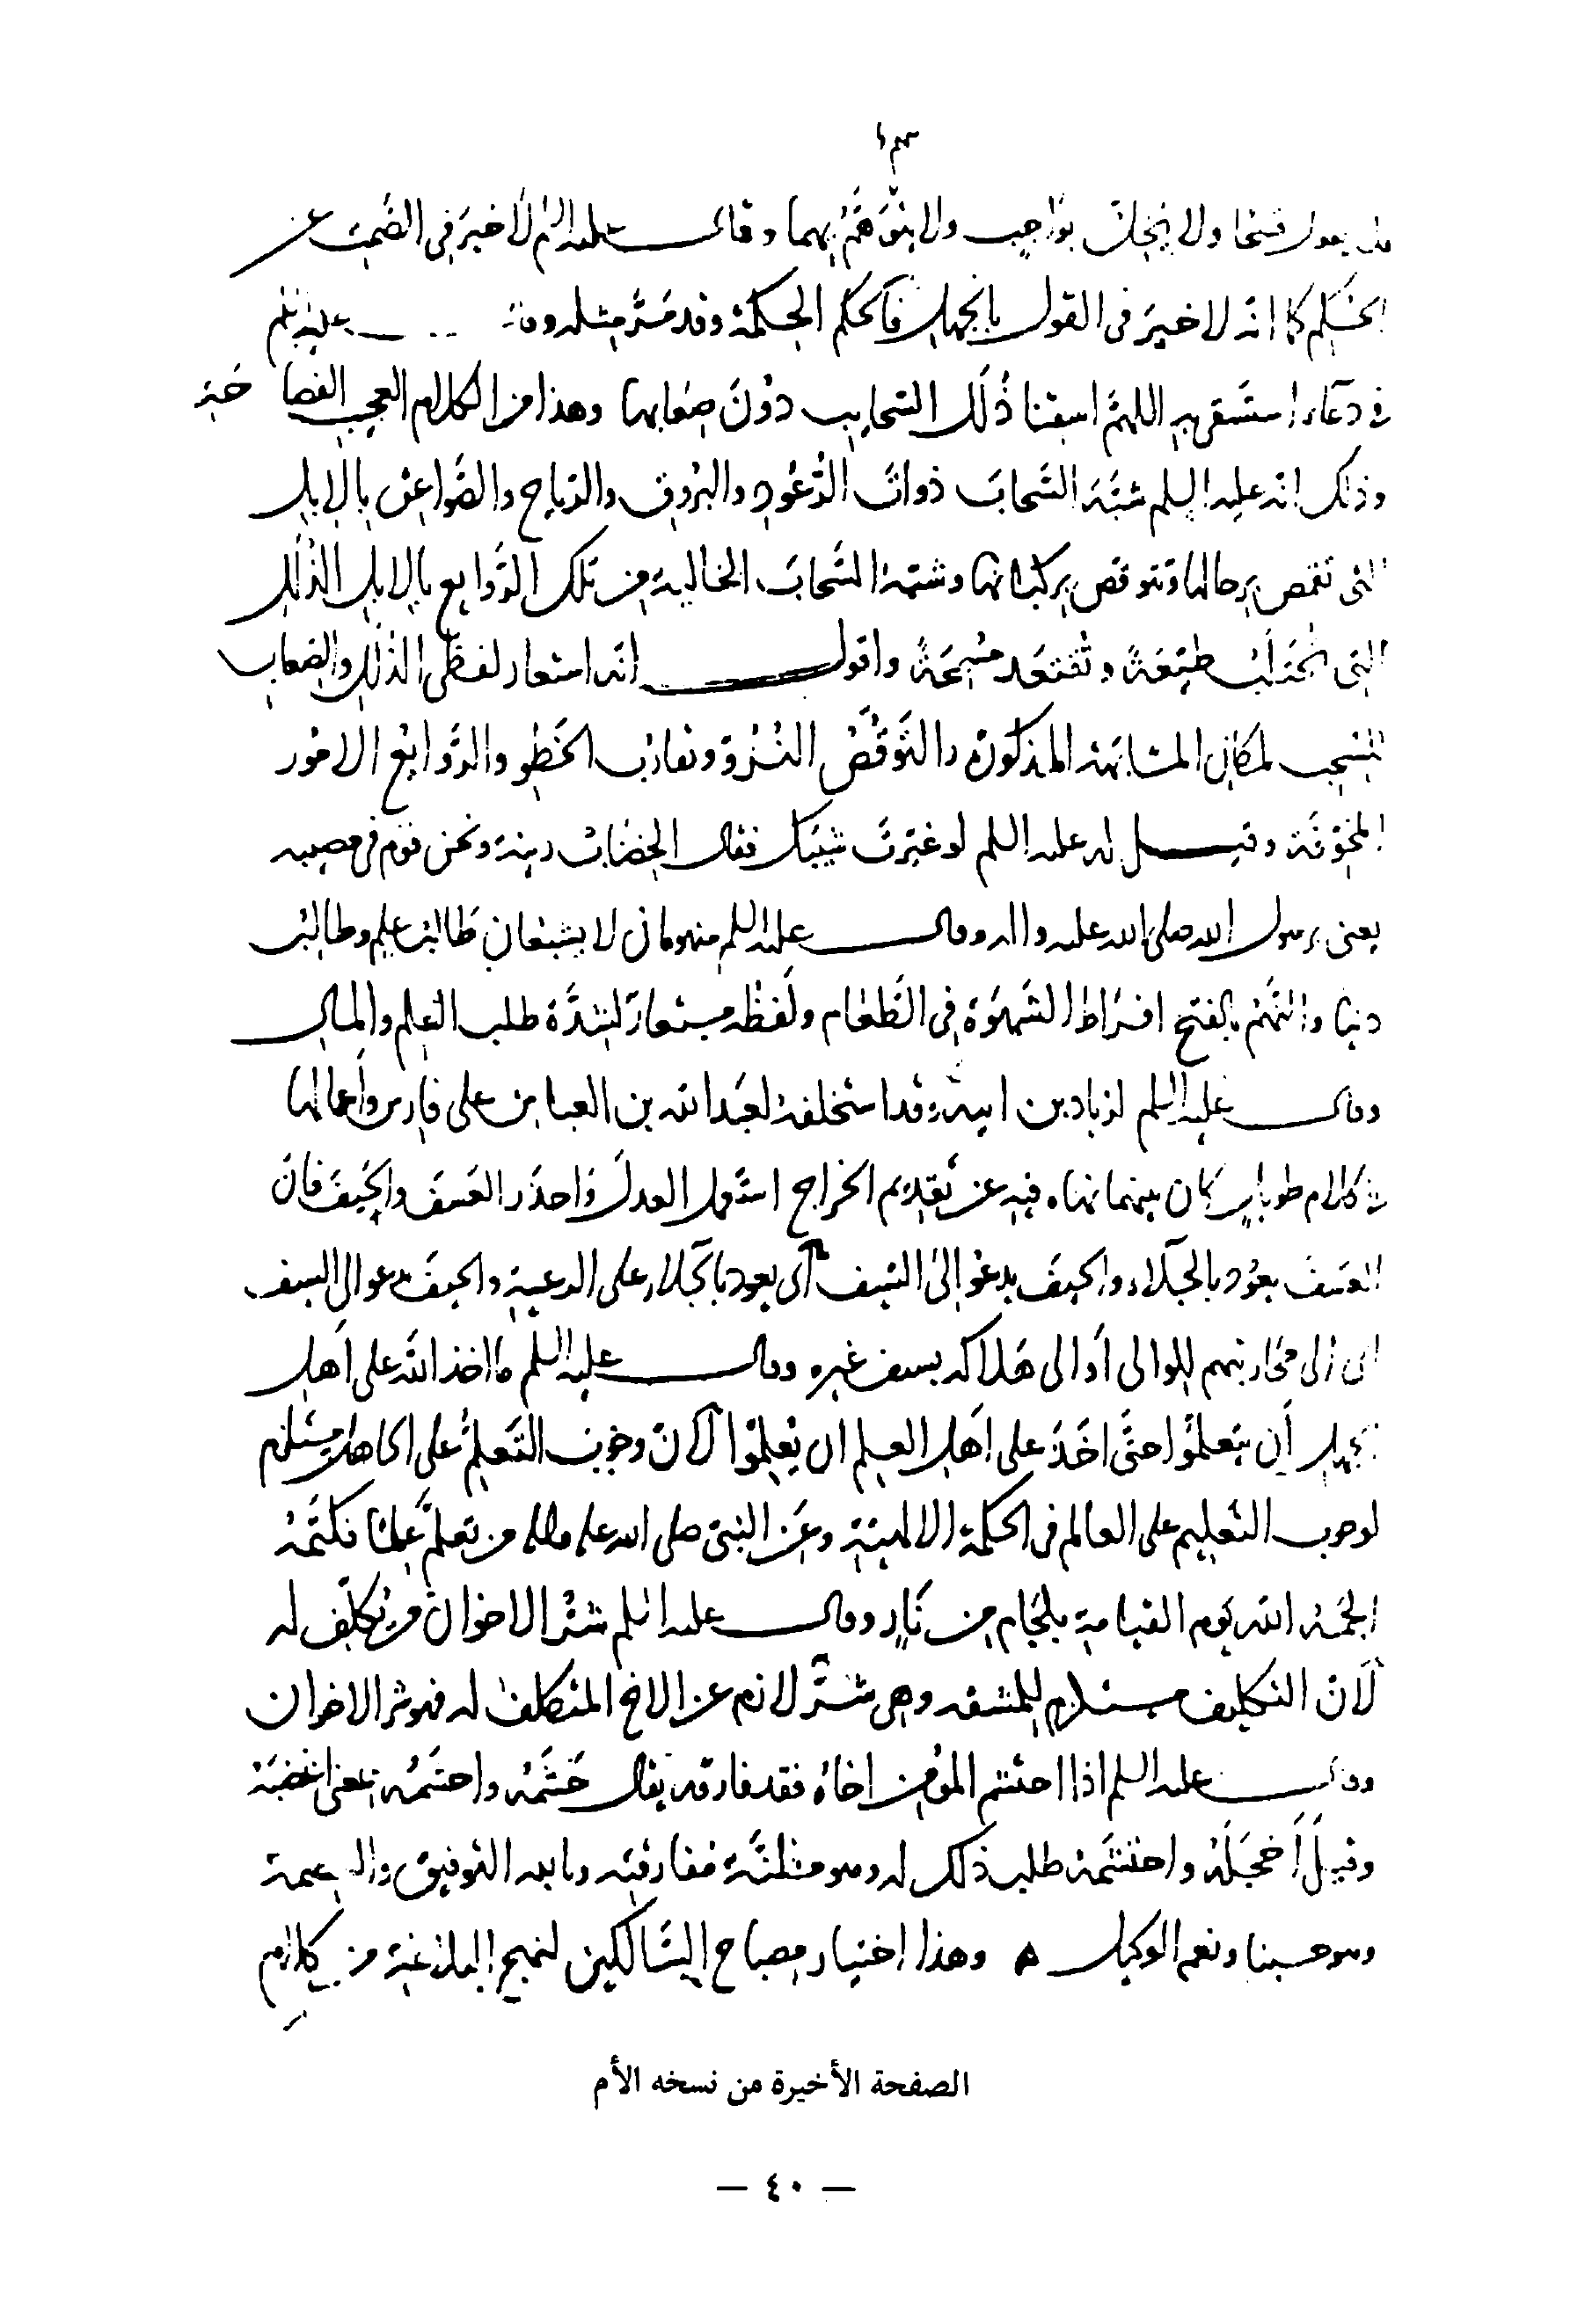 ولا يخل بواجب ولا يتوهم بهما وقال عليه السلم لا خير في الصمت عن
الحكم كما انه لا خير في القول بالجهل فالحكم الحكمة وقد مر مثله وقال عليه السلم
في دعاء استسقى به اللهم اسقنا ذلل السحايب دون صعابها وهذا من الكلام العجيب الفصاحة
وذلك انه عليه السلم شبه السحاب ذوات الرعود والبروق والرياح والصواعق بالابل
التي تقمص برحالها وتتوقص بركبانها وشبه السحاب الخالية من تلك الروايع بالابل الذلل
التي تحتلب طيعة وتقتعد مسمحة واقول انه استعار لفظى الذلل والصعاب
للسحب لمكان المشابهة المذكورة والتوقص النزو وتقارب الخطو والروايع الامور
المخوفة وقيل له عليه السلم لو غيرت شيبك فقال الخضاب زينة ونحن قوم في مصيبه
يعنى برسول الله صلى الله عليه واله وقال عليه السلم منهومان لا يشبعان طالب علم وطالب
دنيا والنهم بالفتح افراط الشهوة في الطعام ولفظه مستعار لشدة طلب العلم والمال
وقال عليه السلم لزياد بن ابيه وقد استخلفه لعبد الله بن العباس على فارس وأعمالها
في كلام طويل كان بينهما نهاه فيه عن تقديم الخراج استعمل العدل واحذر العسف والحيف فان
العسف يعود بالجلاء والحيف يدعو إلى السيف أى يعود بالجلاء على الرعية والحيف يدعو الى السيف
اى الى محاربتهم للوالى أو الى هلاكه بسيف غيره وقال عليه السلم ما اخذ الله على أهل
الجهل أن يتعلموا حتى اخذ على اهل العلم ان يعلموا لان وجوب التعلم على الجاهل مستلزم
لوجوب التعليم على العالم في الحكمة الالهية وعن النبي صلى الله عليه واله من تعلم علما فكتمه
الجمه الله يوم القيامة بلجام من نار وقال عليه السلم شر الاخوان من تكلف له
لان التكليف مستلزم للمشقه وهى شر لازم عن الاخ المتكلف له فهو شر الاخوان
وقال عليه السلم اذا احتشم المؤمن اخاه فقد فارقه يقال حشمه واحتشمه بمعنى اغضبه
وقيل أخجله واحتشمه طلب ذلك له وهو مظنة مفارقته وبالله التوفيق والعصمة
وهو حسبنا ونعم الوكيل ۵ وهذا اختيار مصباح السالكين لنهج البلاغة من كلام
الصفحة الأخيرة من نسخه الأم
— ٤٠ —